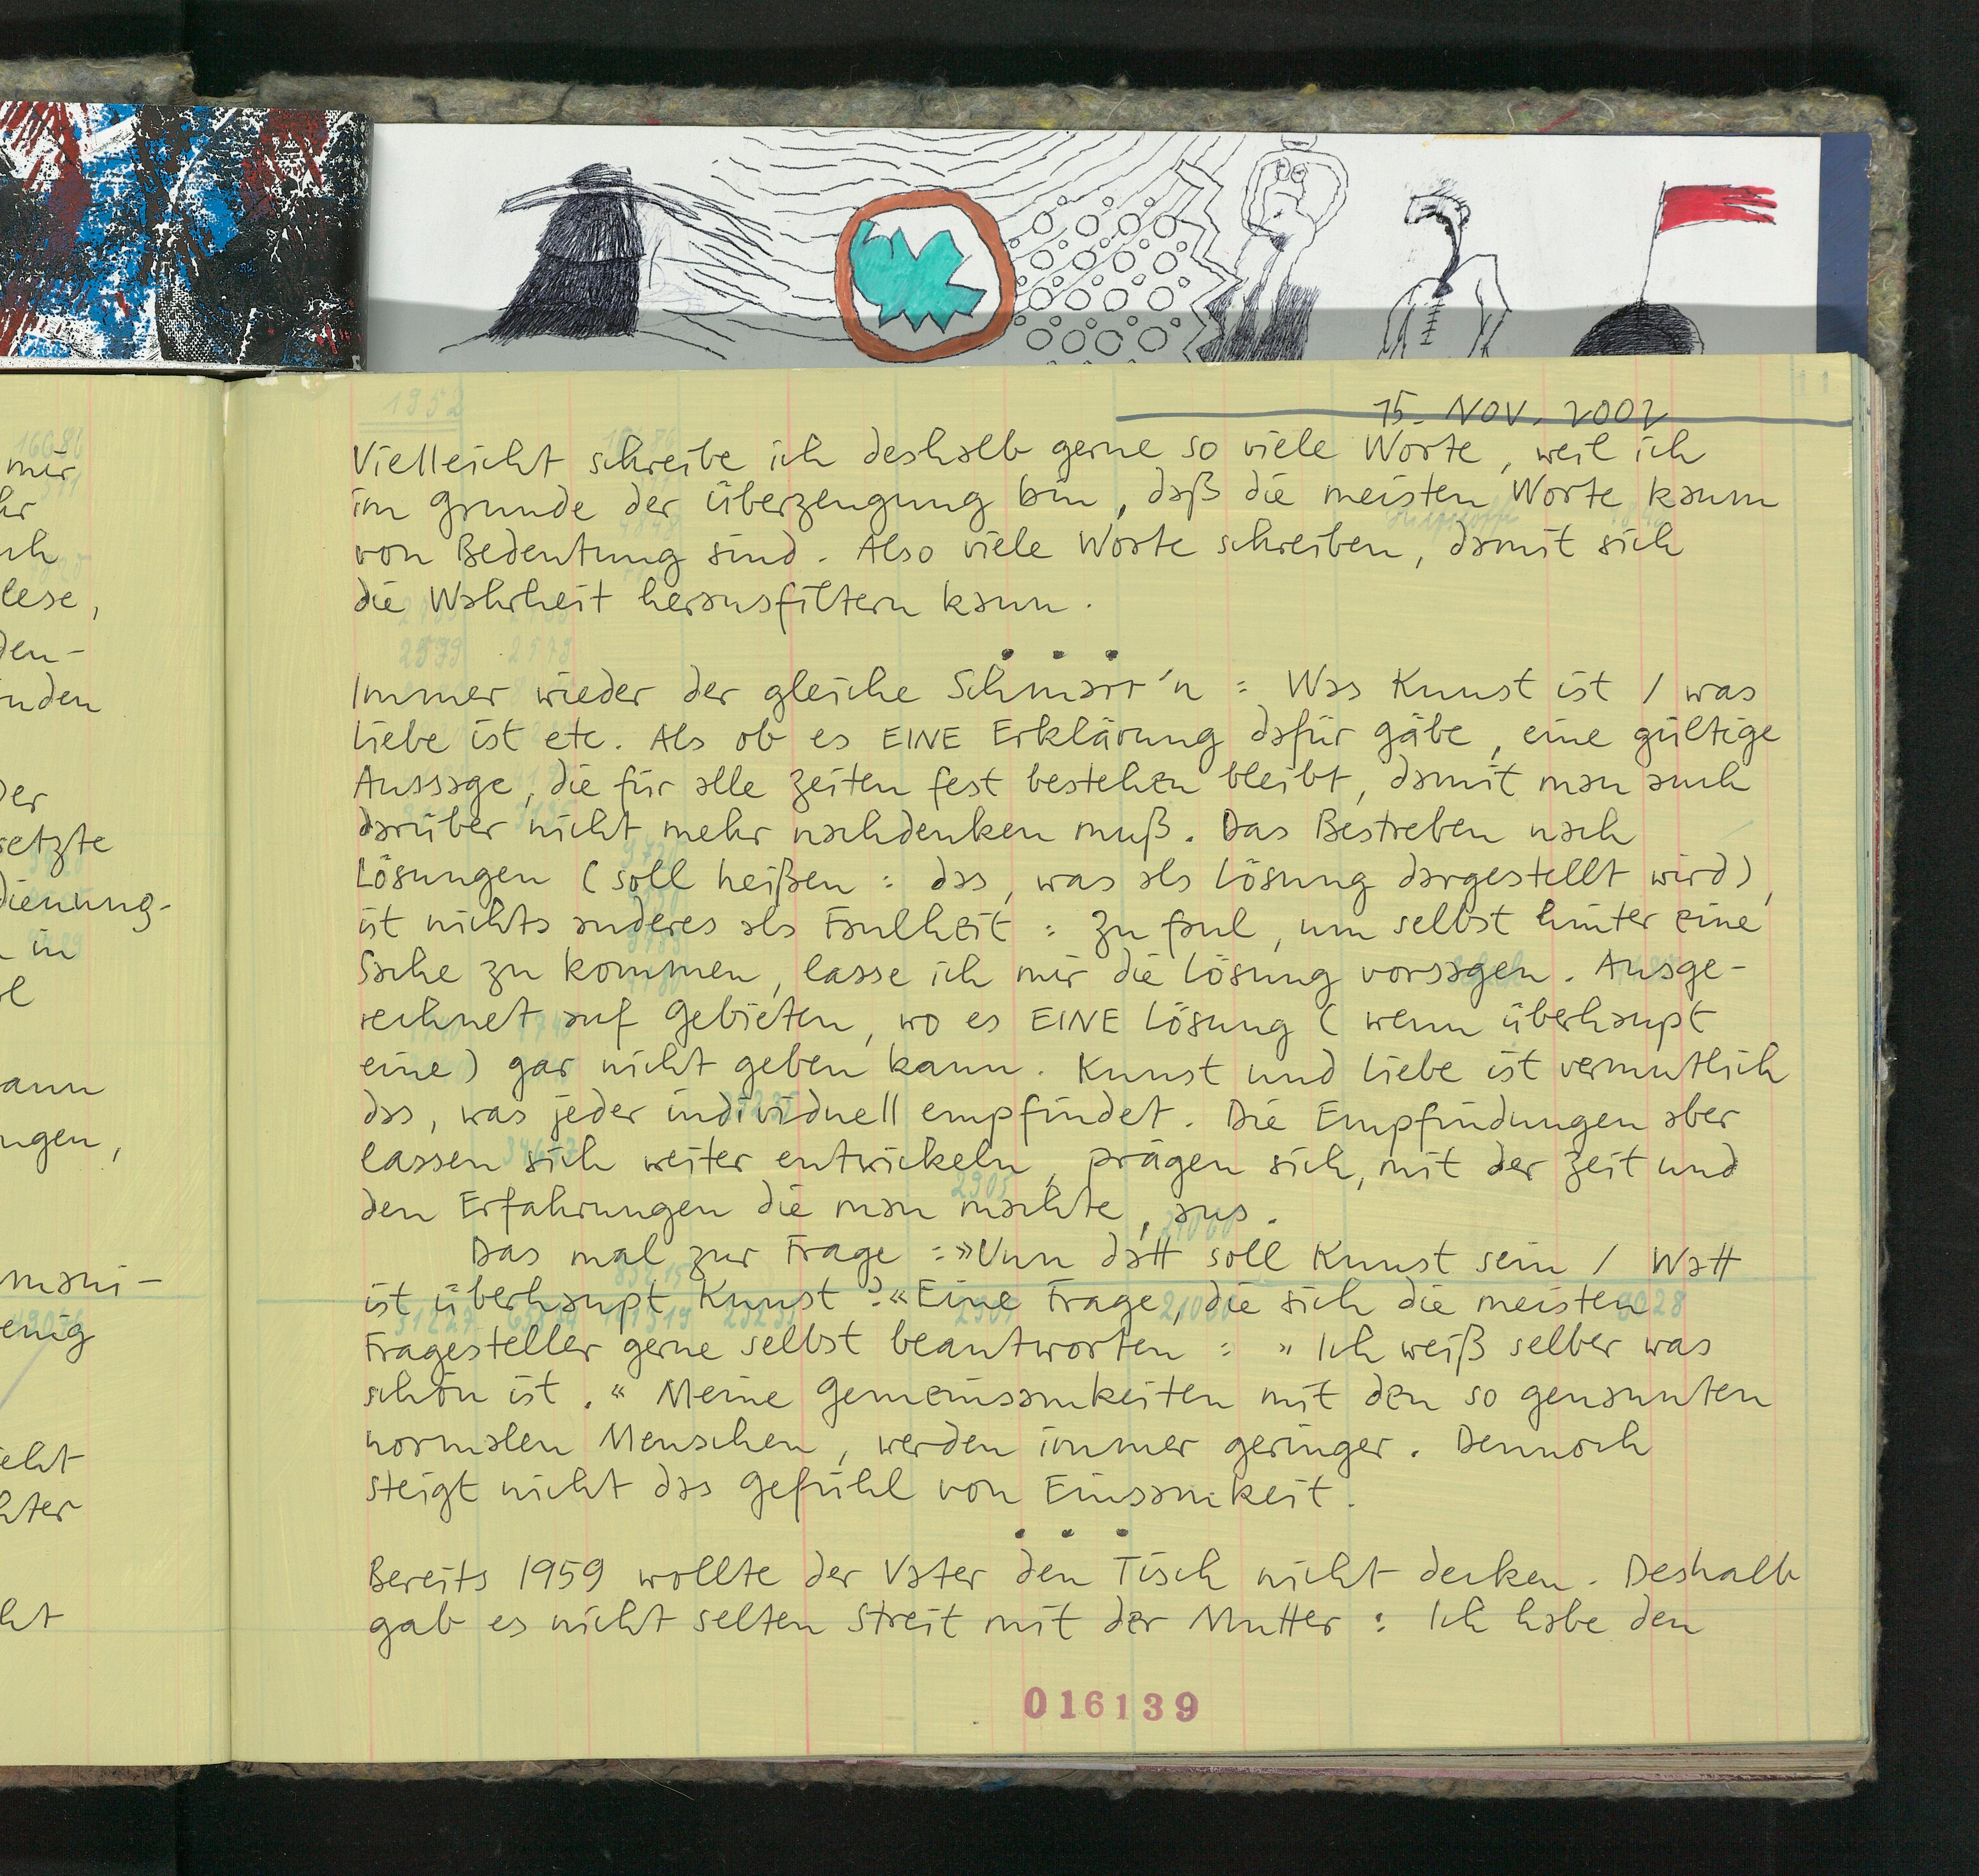 15. NOV. 2002
Vielleicht schreibe ich deshalb gerne so viele Worte, weil ich
im Grunde der Überzeugung bin, daß die meisten Worte kaum
von Bedeutung sind. Also viele Worte schreiben, damit sich
die Wahrheit herausfiltern kann.
. . .
Immer wieder der gleiche Schmarr'n: Was Kunst ist / was
Liebe ist etc. Als ob es EINE Erklärung dafür gäbe, eine gültige
Aussage, die für alle Zeiten fest bestehen bleibt, damit man auch
darüber nicht mehr nachdenken muß. Das Bestreben nach
Lösungen (soll heißen: das, was als Lösung dargestellt wird),
ist nichts anderes als Faulheit: Zu faul, um selbst hinter eine
Sache zu kommen, lasse ich mir die Lösung vorsagen. Ausge-
rechnet auf Gebieten, wo es EINE Lösung (wenn überhaupt
eine) gar nicht geben kann. Kunst und Liebe ist vermutlich
das, was jeder individuell empfindet. Die Empfindungen aber
lassen sich weiter entwickeln, prägen sich, mit der Zeit und
den Erfahrungen die man machte, aus.
Das mal zur Frage: »Vun datt soll Kunst sein / Watt
ist überhaupt Kunst?« Eine Frage, die sich die meisten
Fragesteller gerne selbst beantworten: »Ich weiß selber was
schön ist.« Meine Gemeinsamkeiten mit den so genannten
normalen Menschen, werden immer geringer. Dennoch
steigt nicht das Gefühl von Einsamkeit.
. . .
Bereits 1959 wollte der Vater den Tisch nicht decken. Deshalb
gab es nicht selten Streit mit der Mutter: Ich habe den
016139